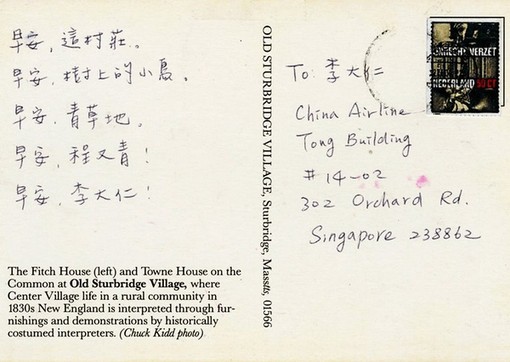 早安，這村莊。
早安，樹上的小鳥。
早安，青草地。
早安，程又青！
早安，李大仁！
The Fitch House (left) and Towne House on the
Common at Old Sturbridge Village, where
Center Village life in a rural community in
1830s New England is interpreted through fur-
nishings and demonstrations by historically
costumed interpreters. (Chuck Kidd photo)
OLD STURBRIDGE VILLAGE, Sturbridge, Masstts, 01566
To: 李大仁
China Airline
Tong Building
#14-02
302 Orchard Rd.
Singapore 238862
VERZET
NEDERLAND